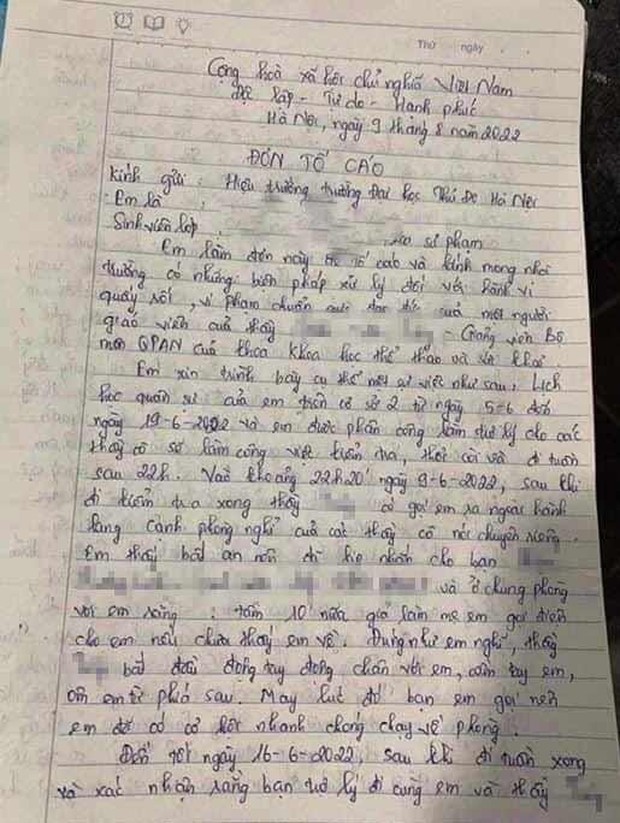 Thứ ngày
Cộng hoà xã hội chủ nghĩa Việt Nam
Độc lập - Tự do - Hạnh phúc
Hà Nội, ngày 9 tháng 8 năm 2022
ĐƠN TỐ CÁO
Kính gửi : Hiệu trưởng trường Đại học Thủ Đô Hà Nội
Em là :
Sinh viên lớp : sư phạm
Em làm đơn này tố cáo và kính mong nhà
trường có những biện pháp xử lý đối với hành vi
quấy rối, vi phạm chuẩn mực đạo đức của một người
giáo viên của thầy - Giảng viên Bộ
môn QPAN của khoa Khoa học thể thao và sức khoẻ.
Em xin trình bày cụ thể một sự việc như sau: Lịch
học quân sự của em trên cơ sở 2 từ ngày 5-6 đến
ngày 19-6-2022 và em được phân công làm tự lý cho các
thầy cô sẽ làm công việc kiểm tra, thổi còi và đi tuần
sau 22h. Vào khoảng 22h20' ngày 9-6-2022, sau khi
đi kiểm tra xong thầy có gọi em ra ngoài hành
lang cạnh phòng nghỉ của các thầy cô nói chuyện riêng.
Em thấy bất an nên đã kịp nhắn cho bạn
và ở chung phòng
với em rằng : tầm 10' nữa giả làm mẹ em gọi điện
cho em nếu chưa thấy em về. Đúng như em nghĩ, thầy
bắt đầu động tay động chân với em, cầm tay em,
ôm em từ phía sau. May lúc đó bạn em gọi nên
em đã có cơ hội nhanh chóng chạy về phòng.
Đến tối ngày 16-6-2022, sau khi đi tuần xong
và xác nhận rằng bạn tự lý đi cùng em và thầy